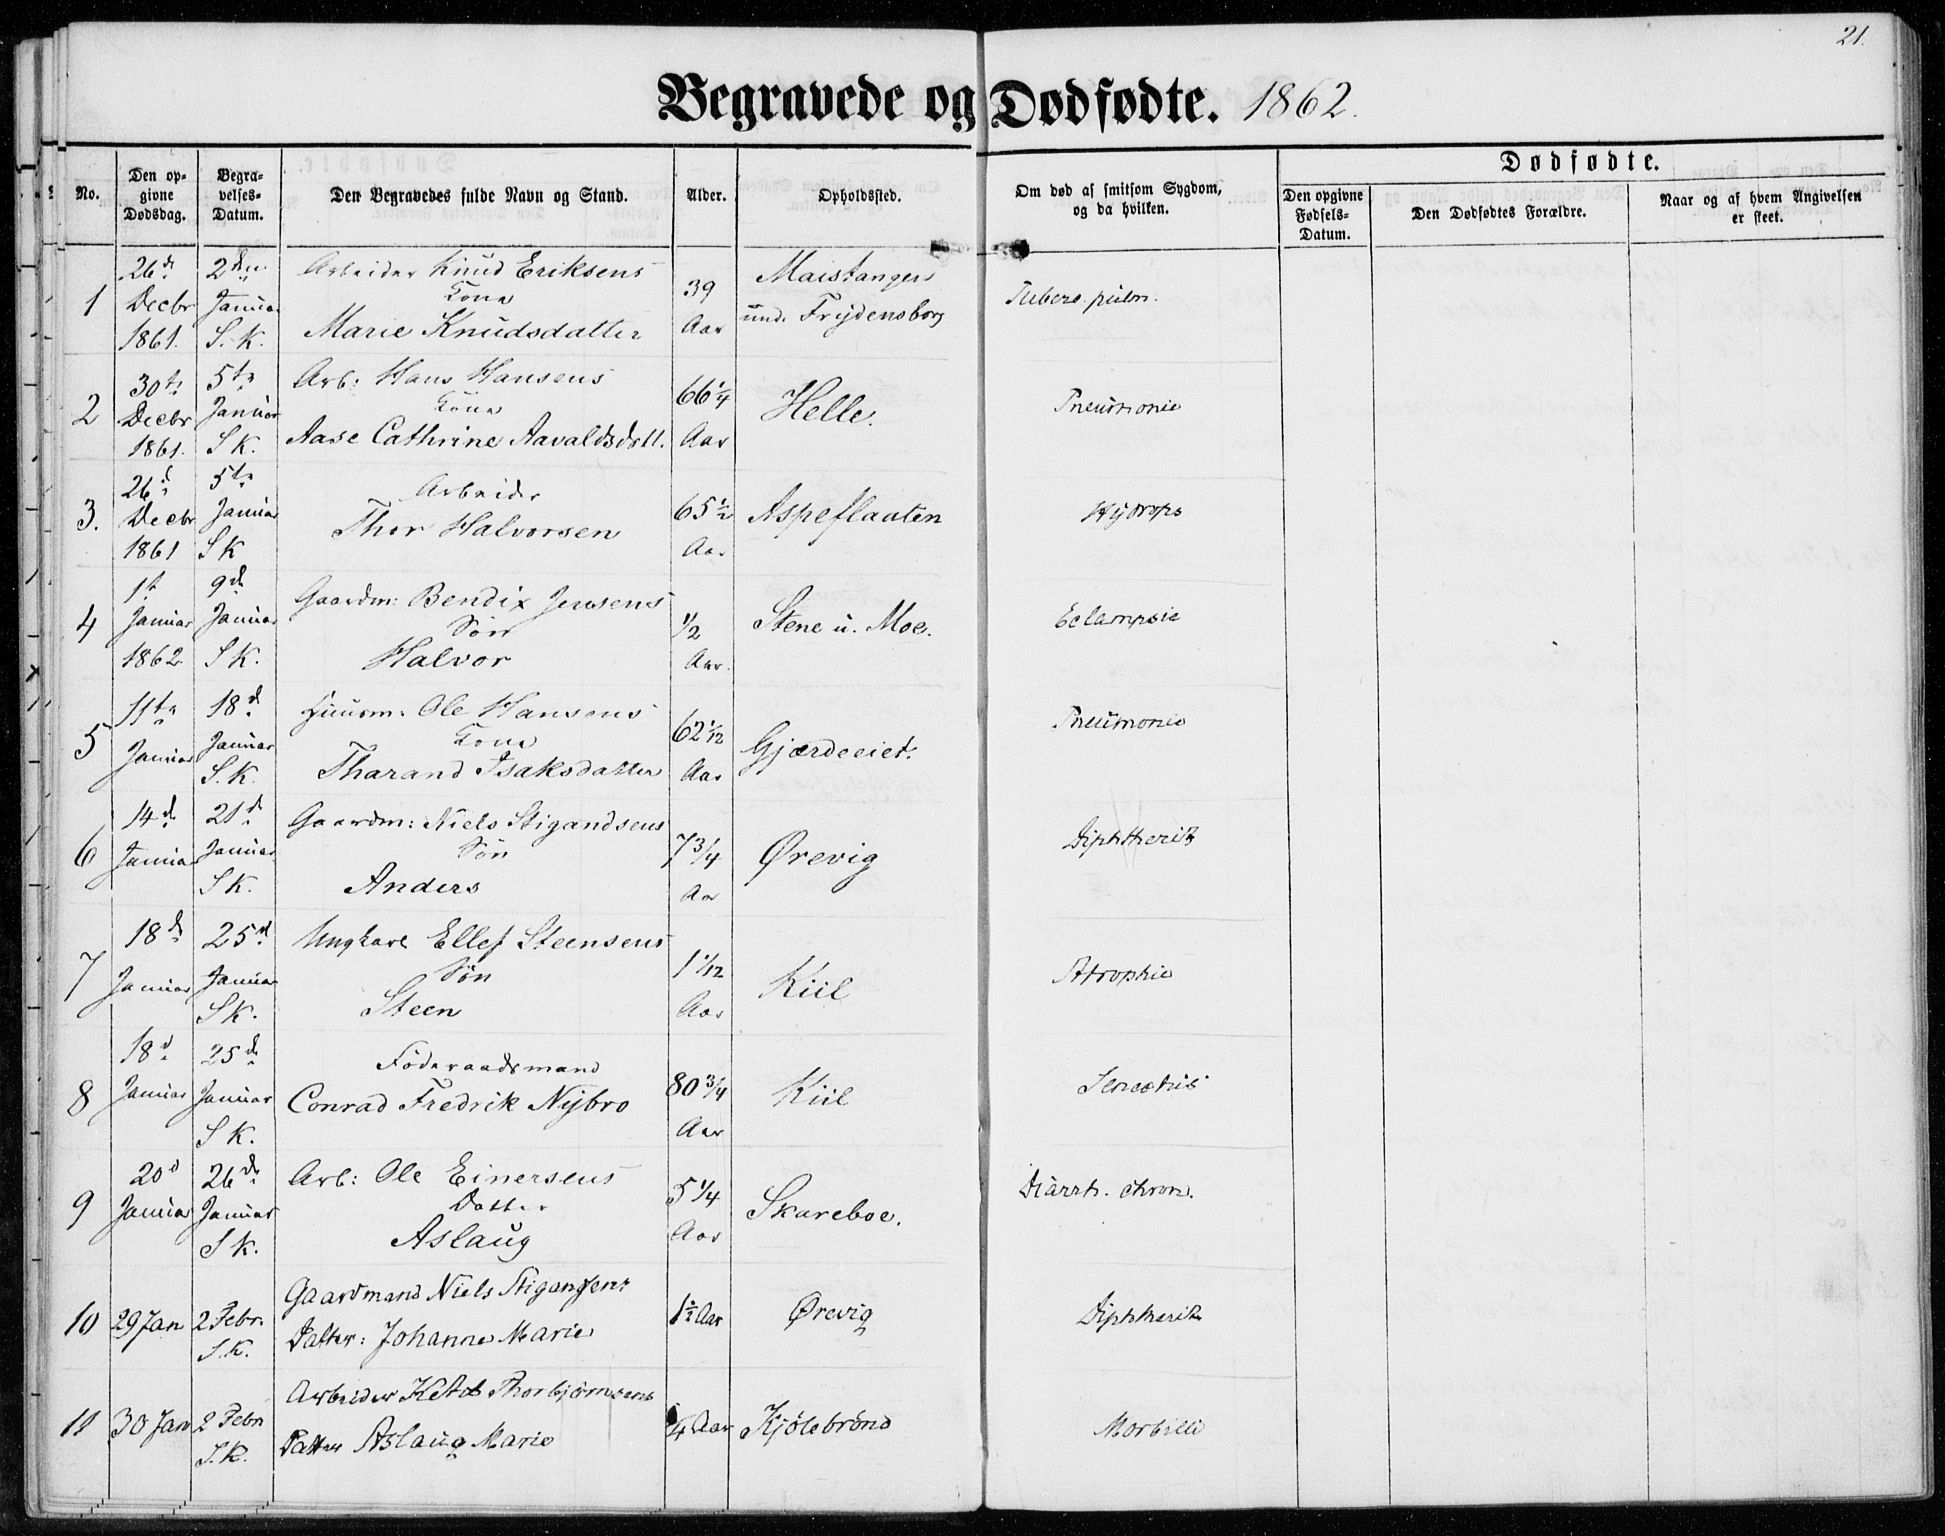 21.
Begravede og Dødfødte. 1862.
No.
Den op-
givne
Dødsdag.
Begra-
velses-
Datum.
Den Begravedes fulde Navn og Stand.
Alder.
Opholdssted.
Om død af smitsom Sygdom,
og da hvilken.
Dødfødte.
Den opgivne
Fødsels-
Datum.
Den Dødfødtes Forældre.
Naar og af hvem Angivelsen
er skeet.
1
26de
Decbr
1861.
2den
Januar
S. K.
Arbeider Knud Eriksens
Kone
Marie Knudsdatter
39
Aar
Maistangen
und. Frydensborg
Tuberc. pulm.
2
30te
Decbr
1861.
5te
Januar
S K.
Arb: Hans Hansens
Kone
Aase Cathrine Aavaldsdatt.
66 1/4
Aar
Helle.
Pneumonie
3.
26d
Decbr
1861
5te
Januar
S K
Arbeider
Thor Halvorsen
65 1/2
Aar
Aspeflaaten
Hydrops
4
1st
Januar
1862.
9de
Januar
S K.
Gaardm: Bendix Jensens
Søn
Halvor
1/2
Aar.
Stene u. Moe.
Eclampsie
5
11te
Januar
18d
Januar
S. K.
Huusm. Ole Hansens
Kone
Tharand Isaksdatter
62 1/12
Aar
Gjærdeeiet.
Pneumonie
6
14de
Januar
21de
Januar
S K.
Gaardm: Niels Stigandsens
Søn
Anders
7 3/4
Aar
Ørevig
Diphtherit
7
18de
Januar
25d
Januar
S K.
Ungkarl Ellef Steensens
Søn
Steen
1 1/12
Aar
Kiil
Atrophie
8
18d
Januar
25de
Januar
S K.
Föderaadsmand
Conrad Fredrik Nybro
80 3/4
Aar
Kiil
9
20d
Januar
26de
Januar
S K.
Arb: Ole Einersens
Datter
Aslaug
5 1/4
Aar
Skareboe.
Diarrh. chron.
10
29 Jan
2 Febr.
S. K.
Gaardmand Niels Stigansens
Datter: Johanne Marie
1 1/2 Aar
Ørevig
Diphtherit
11
30 Jan
2 Febr
S. K.
Arbeider Thorbjørnsens
Datter Aslaug Marie
/4 Aar
Kjölebrönd
Morbilli